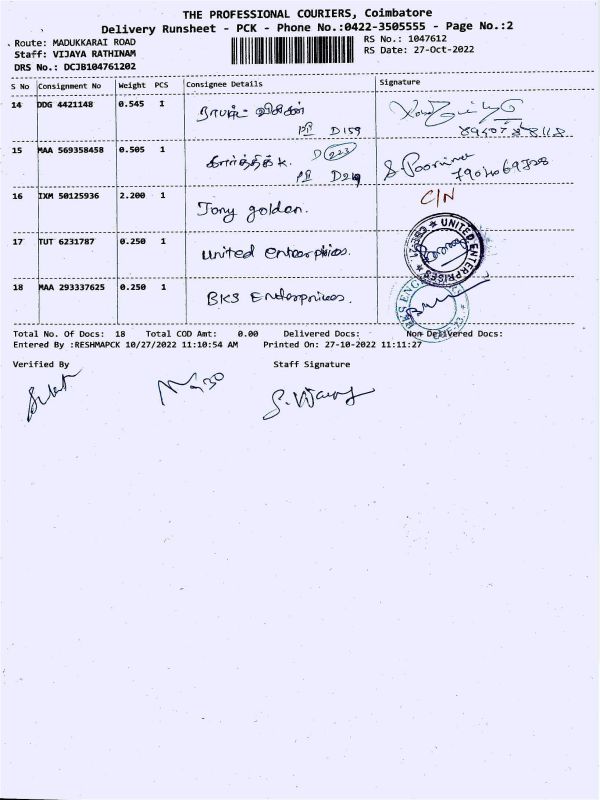 THE PROFESSIONAL COURIERS, Coimbatore
Delivery Runsheet - PCK - Phone No.:0422-3505555 - Page No.:2
Route: MADUKKARAI ROAD
Staff: VIJAYA RATHINAM
DRS No.: DCJB104761202
RS No.: 1047612
RS Date: 27-Oct-2022
S No Consignment No Weight PCS Consignee Details Signature
14 DDG 4421148 0.545 1
D159
15 MAA 569358458 0.505 1 கார்த்திக் K. D223
D219
S. Poornima
16 IXM 50125936 2.200 1 Tony golden. C/N
17 TUT 6231787 0.250 1 United enterprises.
UNITED ENTERPRISES
18 MAA 293337625 0.250 1 BKS Enterprises.
BKS ENG
Total No. Of Docs: 18 Total COD Amt: 0.00 Delivered Docs: Non Delivered Docs:
Entered By :RESHMAPCK 10/27/2022 11:10:54 AM Printed On: 27-10-2022 11:11:27
Verified By Staff Signature